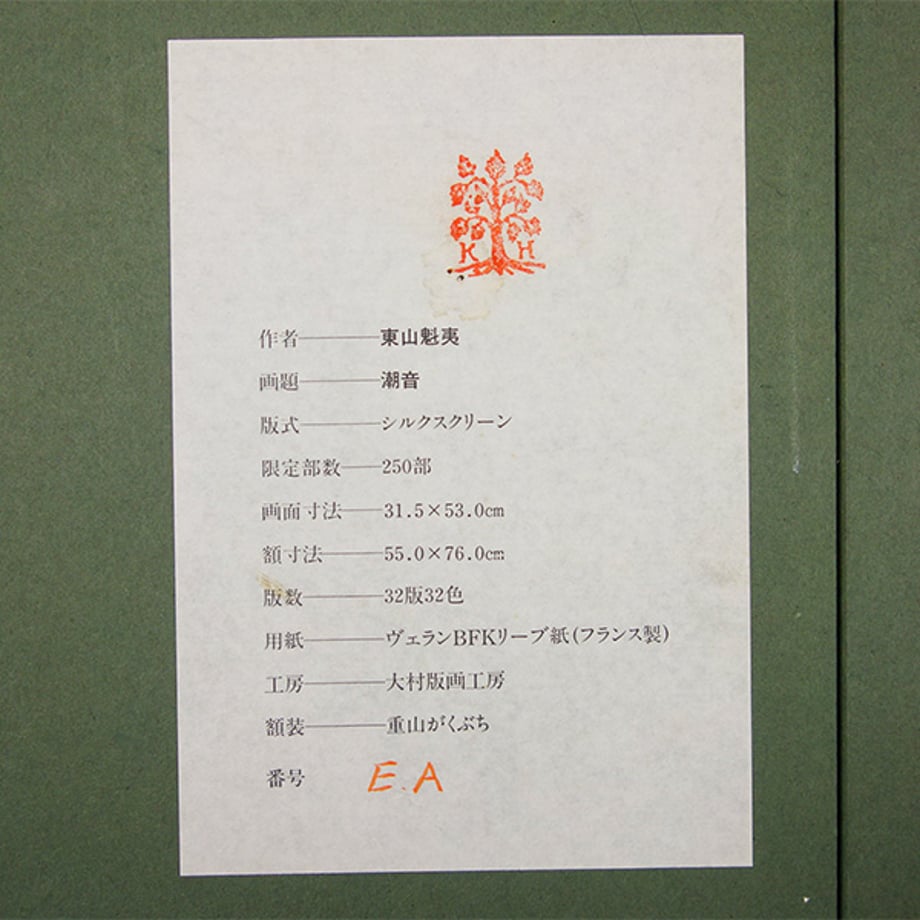 K H
作者――――東山魁夷
画題――――潮音
版式――――シルクスクリーン
限定部数――250部
画面寸法――31.5×53.0cm
額寸法―――55.0×76.0cm
版数――――32版32色
用紙――――ヴェランBFKリーブ紙(フランス製)
工房――――大村版画工房
額装――――重山がくぶち
番号 E.A